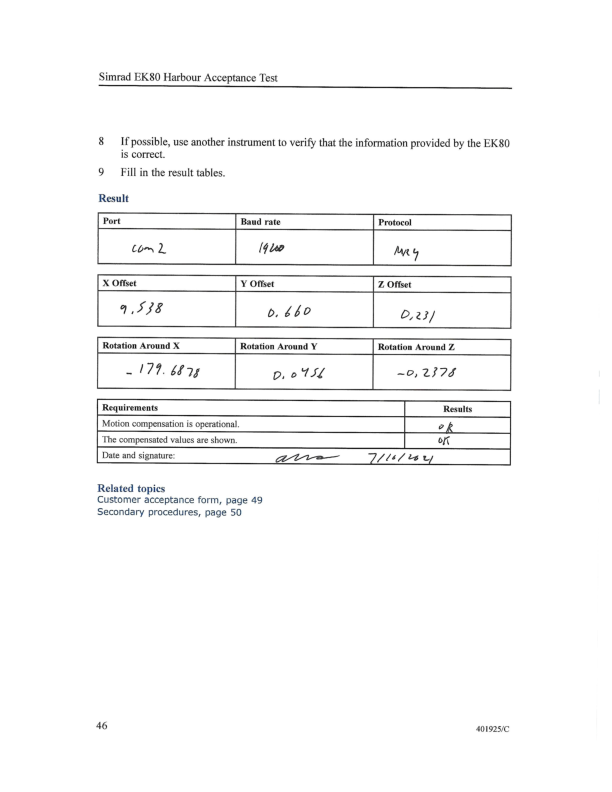 Simrad EK80 Harbour Acceptance Test
8 If possible, use another instrument to verify that the information provided by the EK80
is correct.
9 Fill in the result tables.
Result
Port Baud rate Protocol
com 2 19200
X Offset Y Offset Z Offset
9.538 0.660 0,231
Rotation Around X Rotation Around Y Rotation Around Z
-179.6878 0.0456 -0,2378
Requirements Results
Motion compensation is operational. ok
The compensated values are shown. OK
Date and signature:
Related topics
Customer acceptance form, page 49
Secondary procedures, page 50
46 401925/C